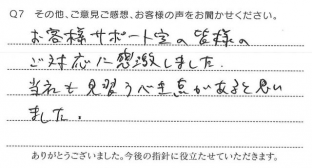 Q7 その他、ご意見ご感想、お客様の声をお聞かせください。
お客様サポート室の皆様の
ご対応に感激しました。
当社も見習うべき点があると思い
ました。
ありがとうございました。今後の指針に役立たせていただきます。